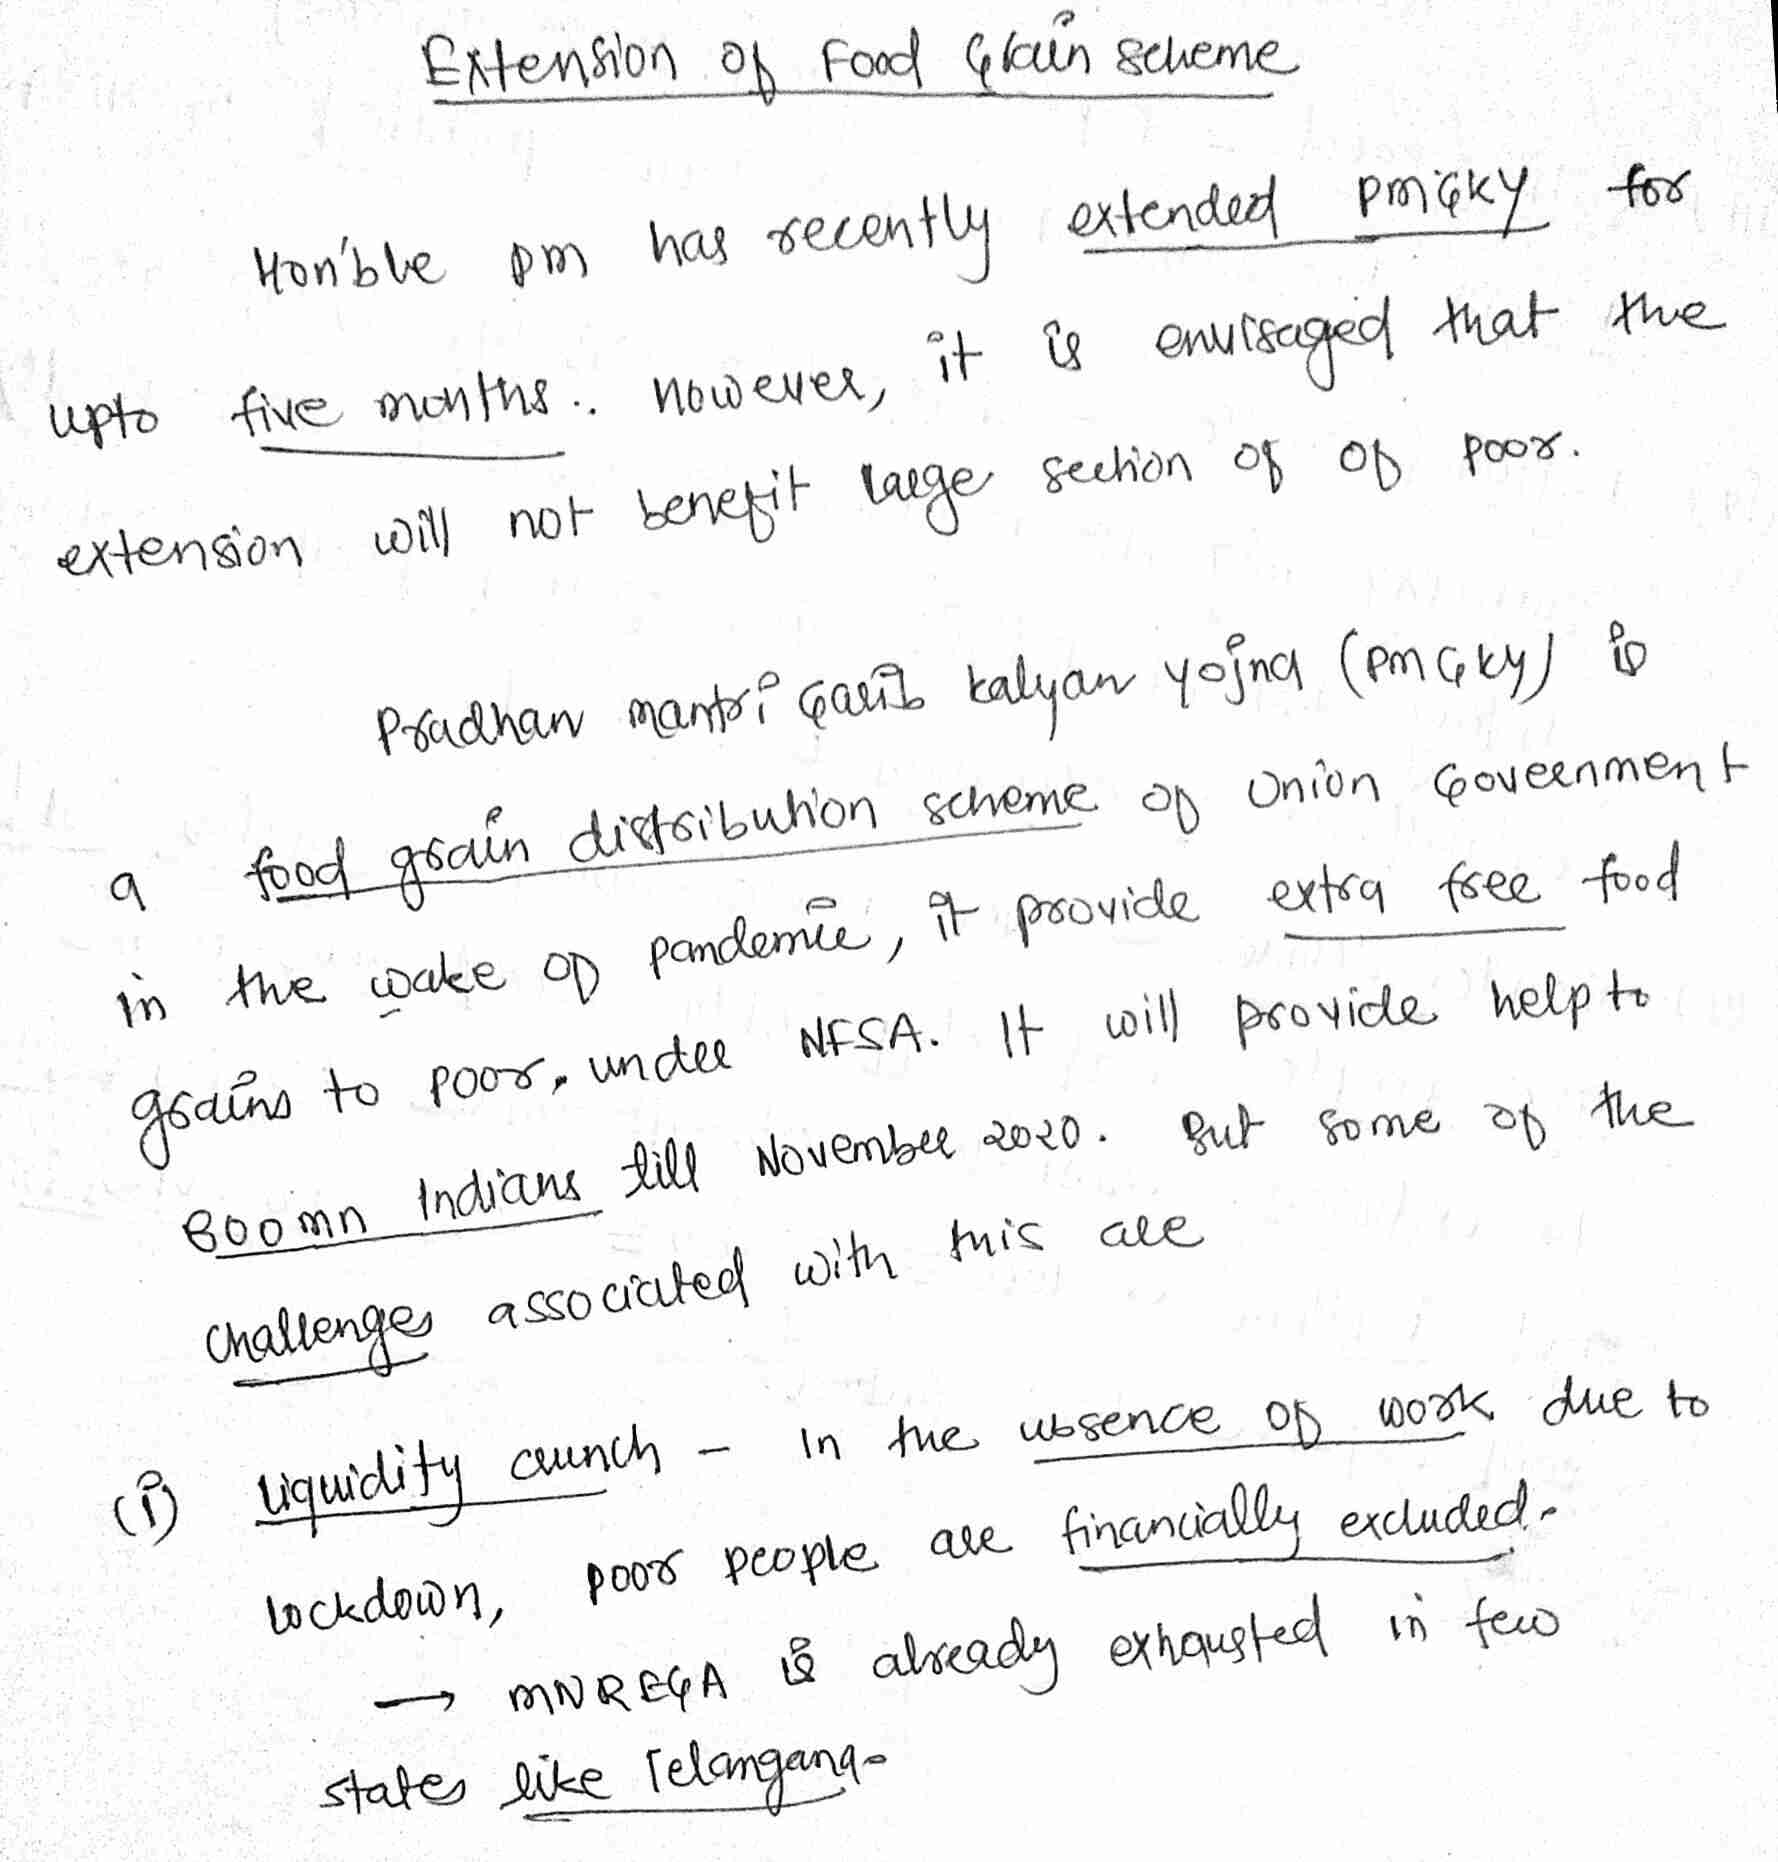 Extension of Food Grain scheme
Hon'ble PM has recently extended PMGKY for
upto five months. However, it is envisaged that the
extension will not benefit large section of of poor.
Pradhan mantri Garib Kalyan Yojna (PMGKY) is
a food grain distribution scheme of Union Government
in the wake of pandemic, it provide extra free food
grains to poor, under NFSA. It will provide help to
800 mn Indians till November 2020. But some of the
challenges associated with this are
(i) Liquidity crunch - In the absence of work due to
lockdown, poor people are financially excluded.
→ MNREGA is already exhausted in few
states like Telangana.